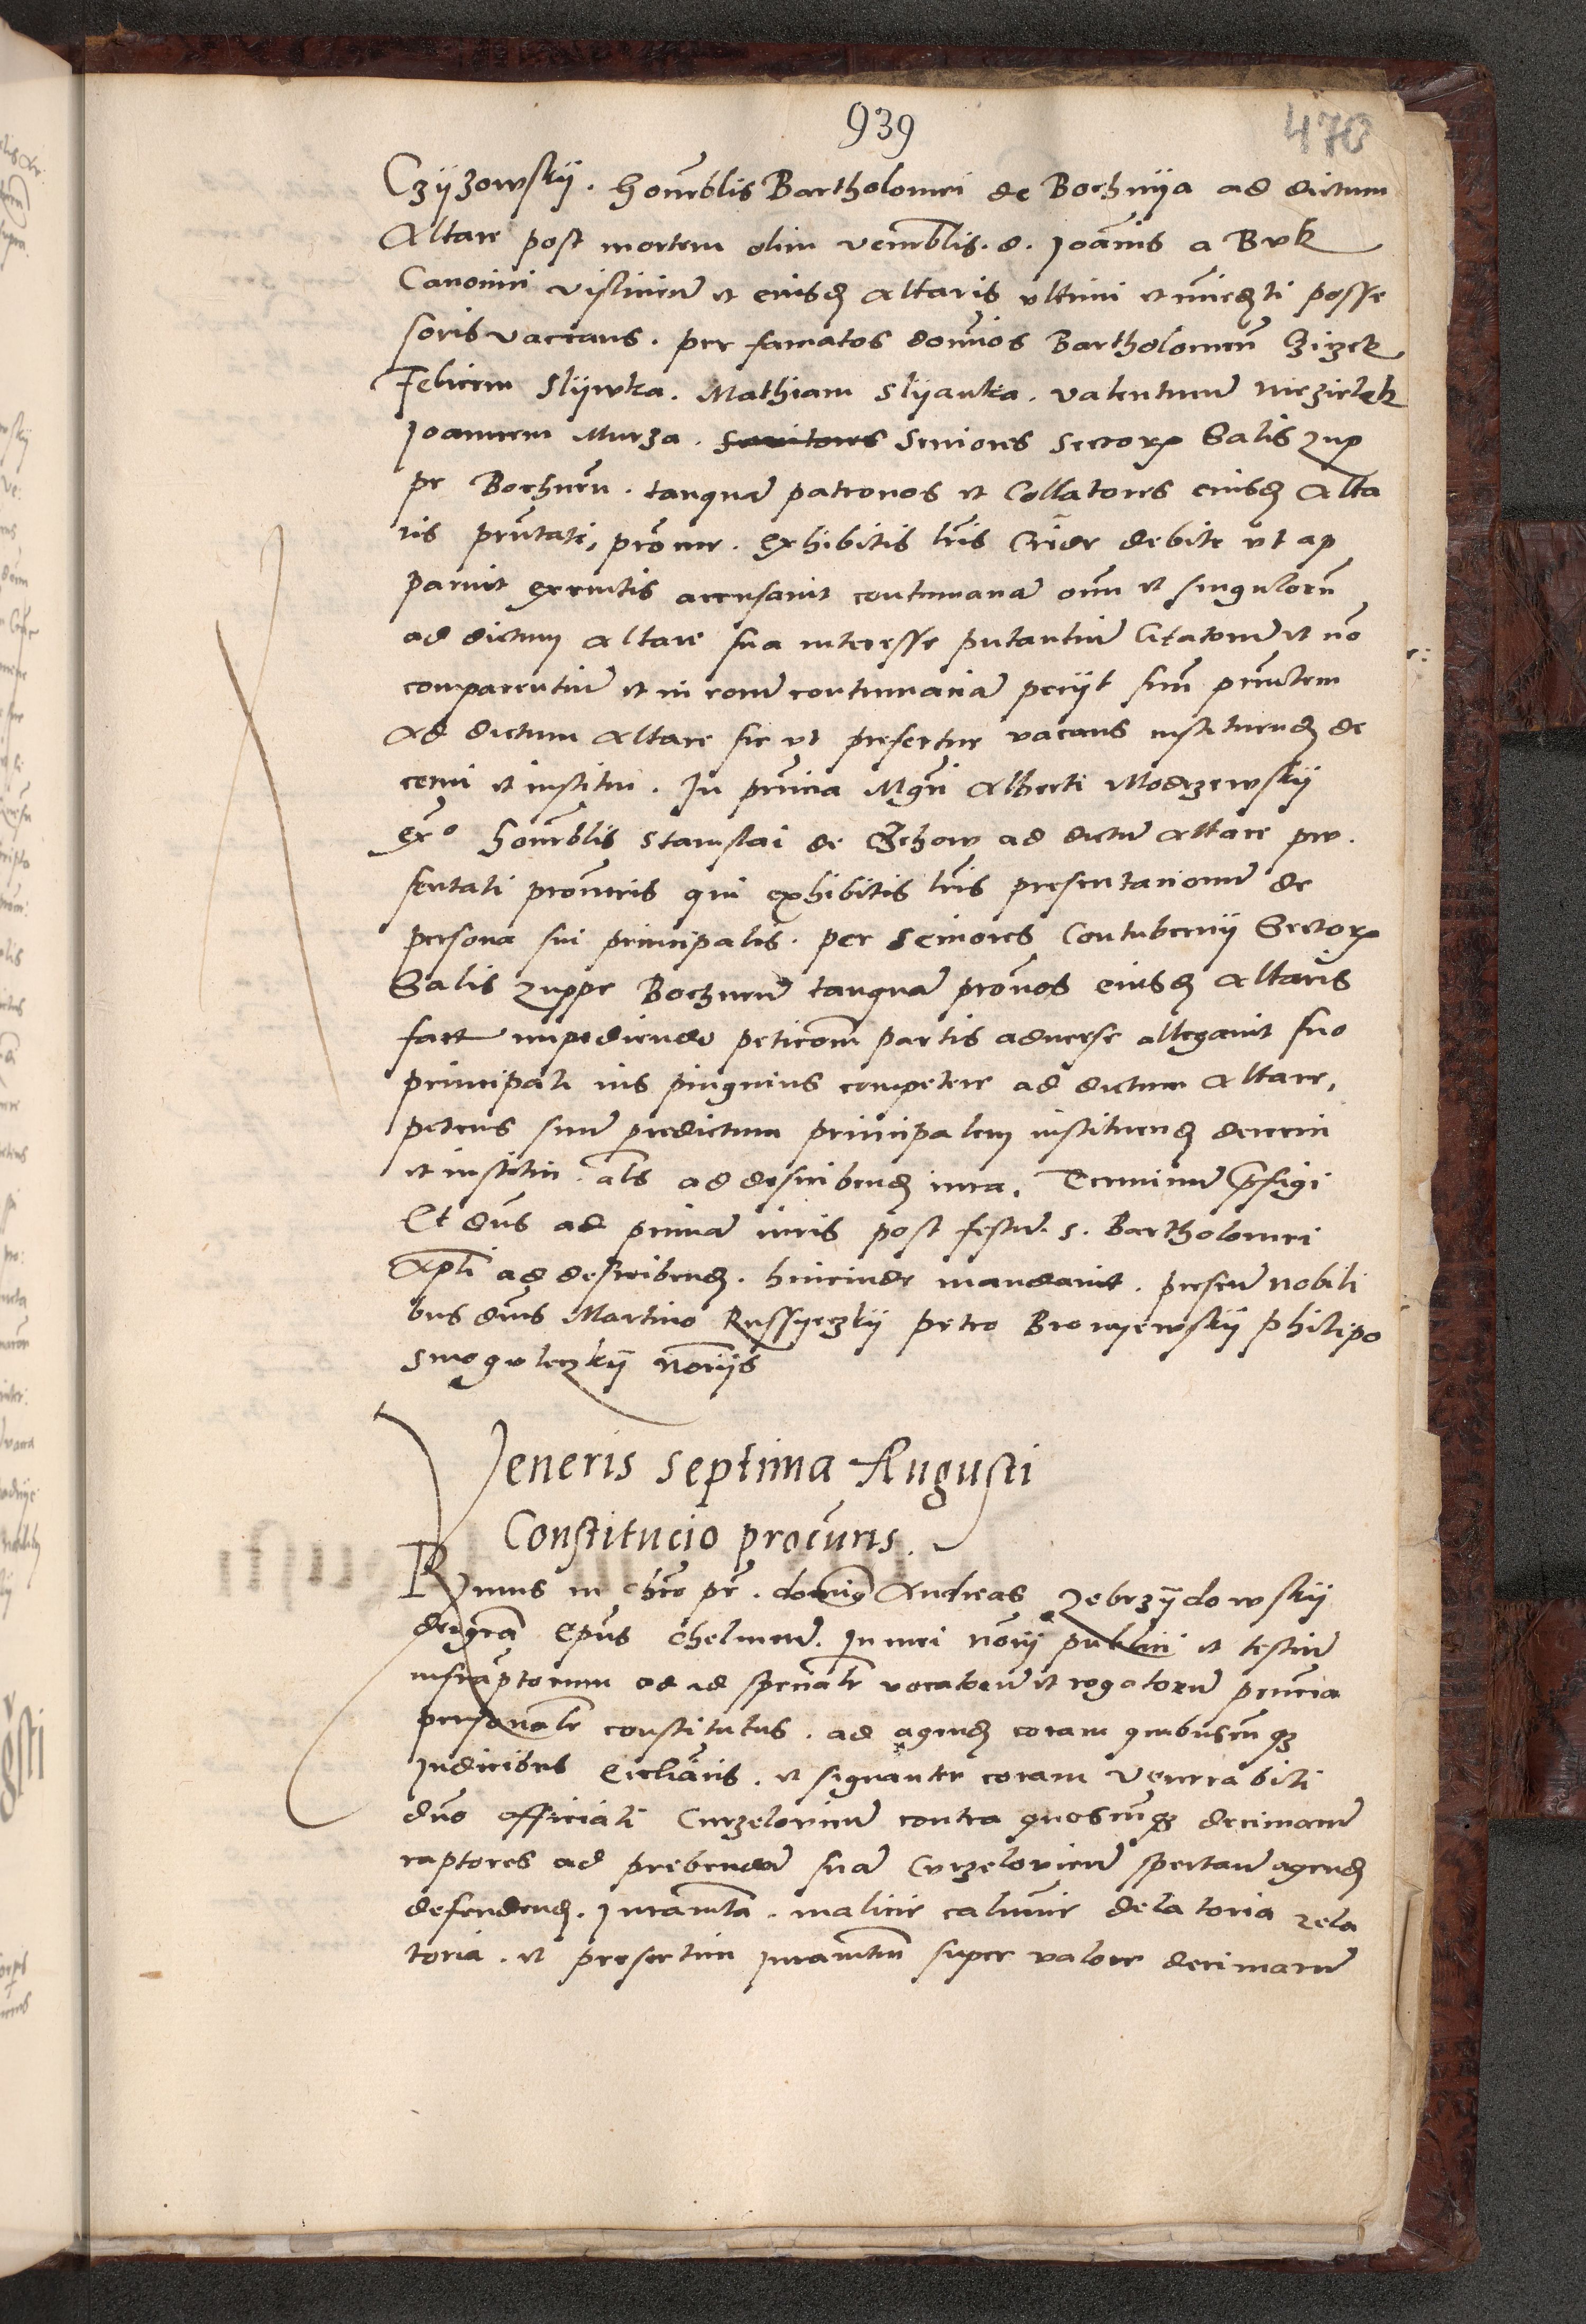 939
470
Czyzowsky. honrblis Bartholomei de Bochnya ad dictum
Altare post mortem olim venrblis. d. Joannis a Buk
Canonici visliciens et eiusd altaris ultimi et immediati posse
soris vaccans. per famatos dominos Bartholomeum
Felicem Slywka. Mathiam Slyanka. valentinum
Joannem Murza. Seniores Sector Salis zup
pe Bochnen. tanquam patronos et Collatores eiusd Alta
ris prntati, procur. exhibitis lris Cride debite ut ap
paruit executis accusavit contumaciam omnium et singulorum
ad dictum altare sua interesse putantium Citatorum et non
comparentium et in eorum contumaciam periit suum prntem
Ad dictum altare sic ut prefertur vacans instituend de
cerni et institui. In prncia Mgri Alberti Modrzewsky
ex° honrblis Stanislai de ad dictum altare pre.
sentati procuris qui exhibitis lris presentacionum de
persona sui principalis. per Seniores Contubernii Sector
Salis zuppe Bochnen tanquam pronos eiusd Altaris
fact impediendo peticom partis adverse allegavit suo
principali ius pinguius competere ad dictum altare,
petens suum predictum principalem instituend decerni
et institui. als ad describend iura. Terminum prefigi
Et dns ad primam iuris post festum. s. Bartholomei
Apli ad describend. hincinde mandavit. presen nobili
bus dnis Martino Russyeczky petro Bronyewsky philipo
Smoguleczky noriis
Veneris Septima Augusti
Constitucio procuris.
Rdmus in chro pr. dominus Andreas Zebrzydowsky
dei gra Epus Chelmen. In mei norii publici et testium
infrascriptorum ad id specialr vocatorum et rogatorum prncia
personalr constitutus. ad agend coram quibuscunq
Judicibus Ecclianis. et signanter coram Venerabili
dno officiali Curzelovien contra quoscunq decimarum
raptores ad prebendam suam Curzelovien spectan agend
defendend. Juramta. malicie calumnie delatoria rela
toria. et presertim juramtum super valore decimarum